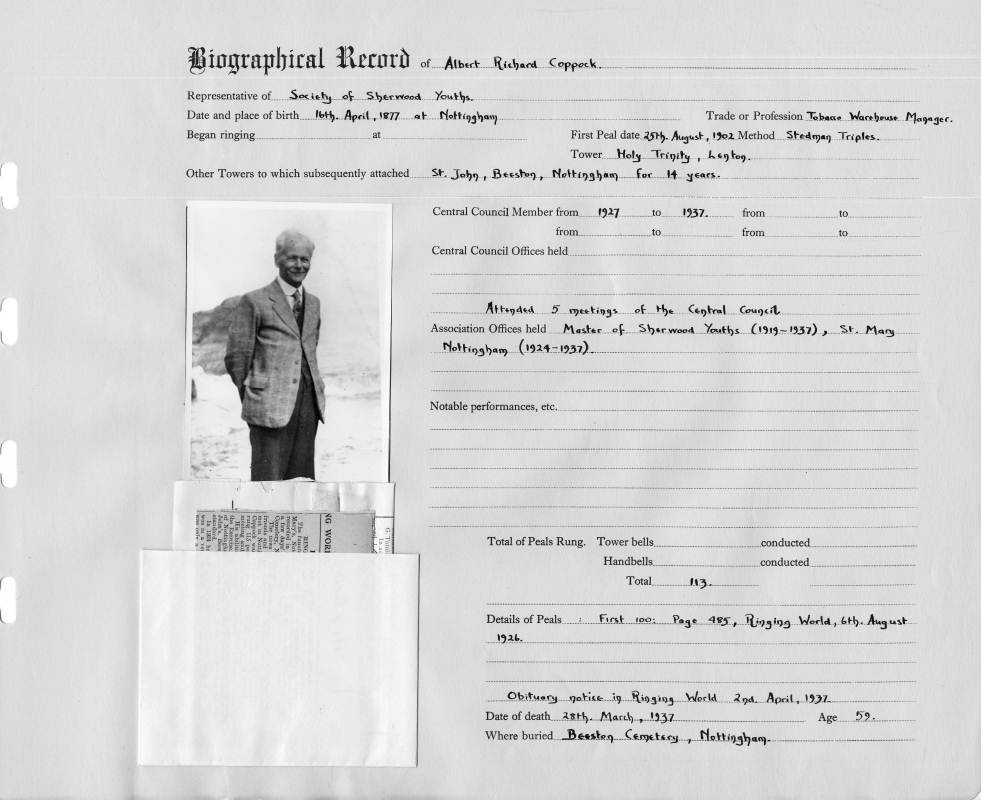 Biographical Record of Albert Richard Coppock.
Representative of Society of Sherwood Youths.
Date and place of birth 16th. April, 1877 at Nottingham Trade or Profession Tobacco Warehouse Manager.
Began ringing at First Peal date 25th. August, 1902 Method Stedman Triples.
Tower Holy Trinity, Lenton.
Other Towers to which subsequently attached St. John, Beeston, Nottingham for 14 years.
Central Council Member from 1927 to 1937. from to
from to from to
Central Council Offices held
Attended 5 meetings of the Central Council
Association Offices held Master of Sherwood Youths (1919-1937), St. Mary
Nottingham (1924-1937).
Notable performances, etc.
Total of Peals Rung. Tower bells conducted
Handbells conducted
Total 113.
Details of Peals : First 100: Page 485, Ringing World, 6th. August
1926.
Obituary notice in Ringing World 2nd. April, 1937.
Date of death 28th. March, 1937 Age 59.
Where buried Beeston Cemetery, Nottingham.